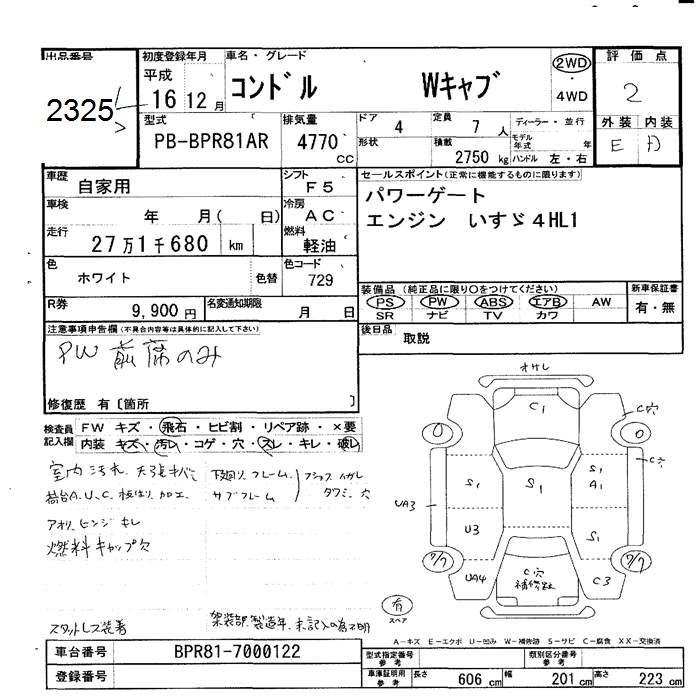 出品番号 初度登録年月 車名・グレード 2WD 評価点
平成
2325 16 12月 コンドル Wキャブ ・ 2
4WD
型式 排気量 ドア 定員 ディーラー・並行 外装 内装
PB-BPR81AR 4770 CC 4 7人 モデル年式 年 E D
形状 積載 2750kg ハンドル 左・右
車歴 シフト セールスポイント(正常に機能するものに限ります)
自家用 F5 パワーゲート
車検 冷房
年 月( 日) AC エンジン いすゞ4HL1
走行 燃料
27万1千680 km 軽油
色 色コード
ホワイト 色替 729 装備品(純正品に限り○をつけてください) 新車保証書
R券 9,900円 名変通知期限 月 日 PS PW ABS エアB AW 有・無
SR ナビ TV カワ
注意事項申告欄(不具合内容等は具体的に記入して下さい) 後日品 取説
PW前席のみ
修復歴 有〔箇所 〕
検査員記入欄 FW キズ・飛石・ヒビ割・リペア跡・×要
内装 キズ・汚レ・コゲ・穴・スレ・キレ・破レ
オサレ
C1
C穴
C穴
S1 S1 S1 A1
UA3
U3 S1
7/7 7/7
UA4 C穴 C3
補修跡
有
スペア
室内汚れ 下廻り、フレーム、
荷台A.U.C. 加工 サブフレーム 穴
アオリ、ヒンジ キレ
燃料キャップ穴
スタットレス装着 架装部製造年、未記入の為不明
A-キズ E-エクボ U-凹み W-補修跡 S-サビ C-腐食 XX-交換済
車台番号 BPR81-7000122 型式指定番号 参考 類別区分番号 参考
登録番号 車庫証明用 参考 長さ 606 cm 幅 201 cm 高さ 223 cm